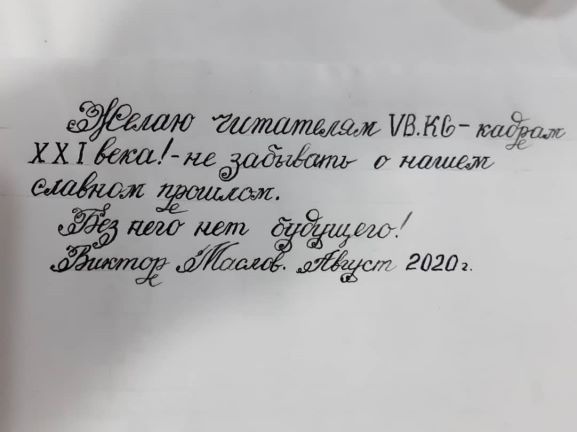 Желаю читателям VB.KG - кадрам
XXI века! - не забывать о нашем
славном прошлом.
Без него нет будущего!
Виктор Маслов. Август 2020 г.